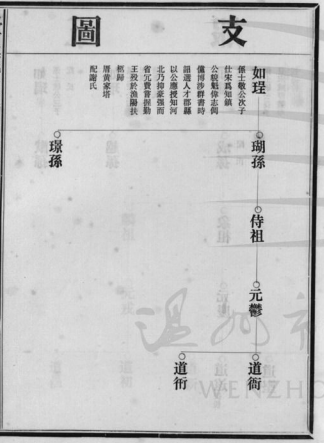 支圖
如珵
係士敬公次子
仕宋爲知鎮
公貌魁偉志倜
儻博涉群書時
詔選人才郡縣
以公應授知河
北乃抑豪强而
省冗費嘗督勤
王歿於漁陽扶
柩歸
厝黃家塔
配謝氏
瑚孫
璟孫
侍祖
元鬱
道衙
道衍
溫州市
WENZHO